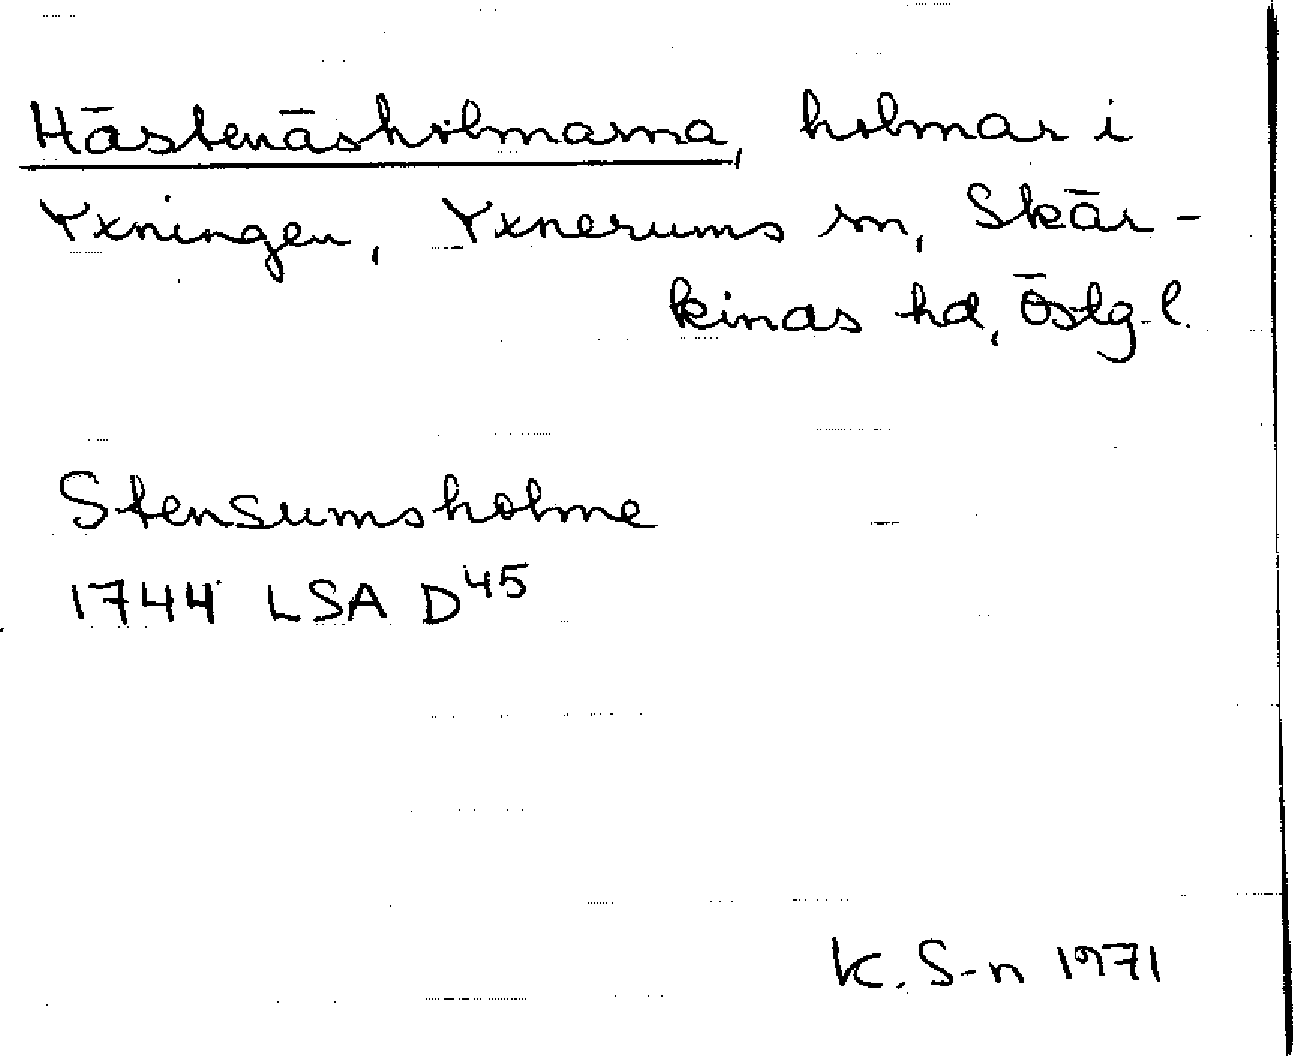 Hästenäsholmarna, holmar i
Yxningen, Yxnerums sn, Skär-
kinds hd, Östg. l.
Stensumsholme
1744 LSA D45
K. S-n 1971